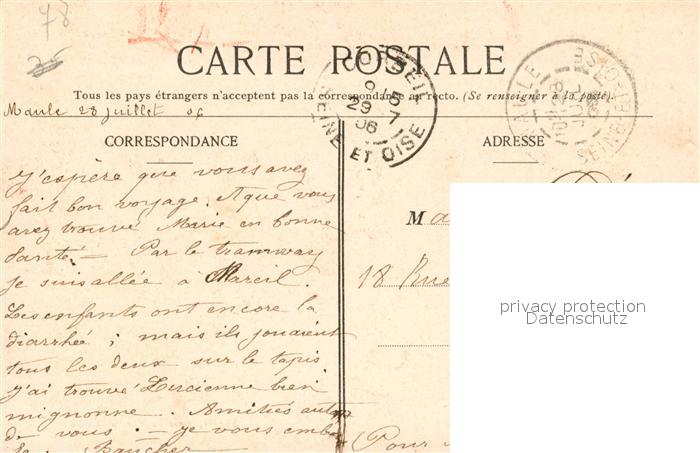 78
CARTE POSTALE
Tous les pays étrangers n'acceptent pas la correspondance au recto. (Se renseigner à la poste).
Maule 28 juillet 06
CORRESPONDANCE
ADRESSE
CORBEIL
29 7
06
SEINE ET OISE
J'espère que vous avez
fait bon voyage. Et que vous
avez trouvé Marie en bonne
santé — Par le tramway
je suis allée à Mareil.
Les enfants ont encore la
diarrhée ; mais ils jouaient
tous les deux sur le tapis
j'ai trouvé Lucienne bien
mignonne. Amitiés
de vous. — je vous
Ma
18 Rue
(Pour
privacy protection
Datenschutz